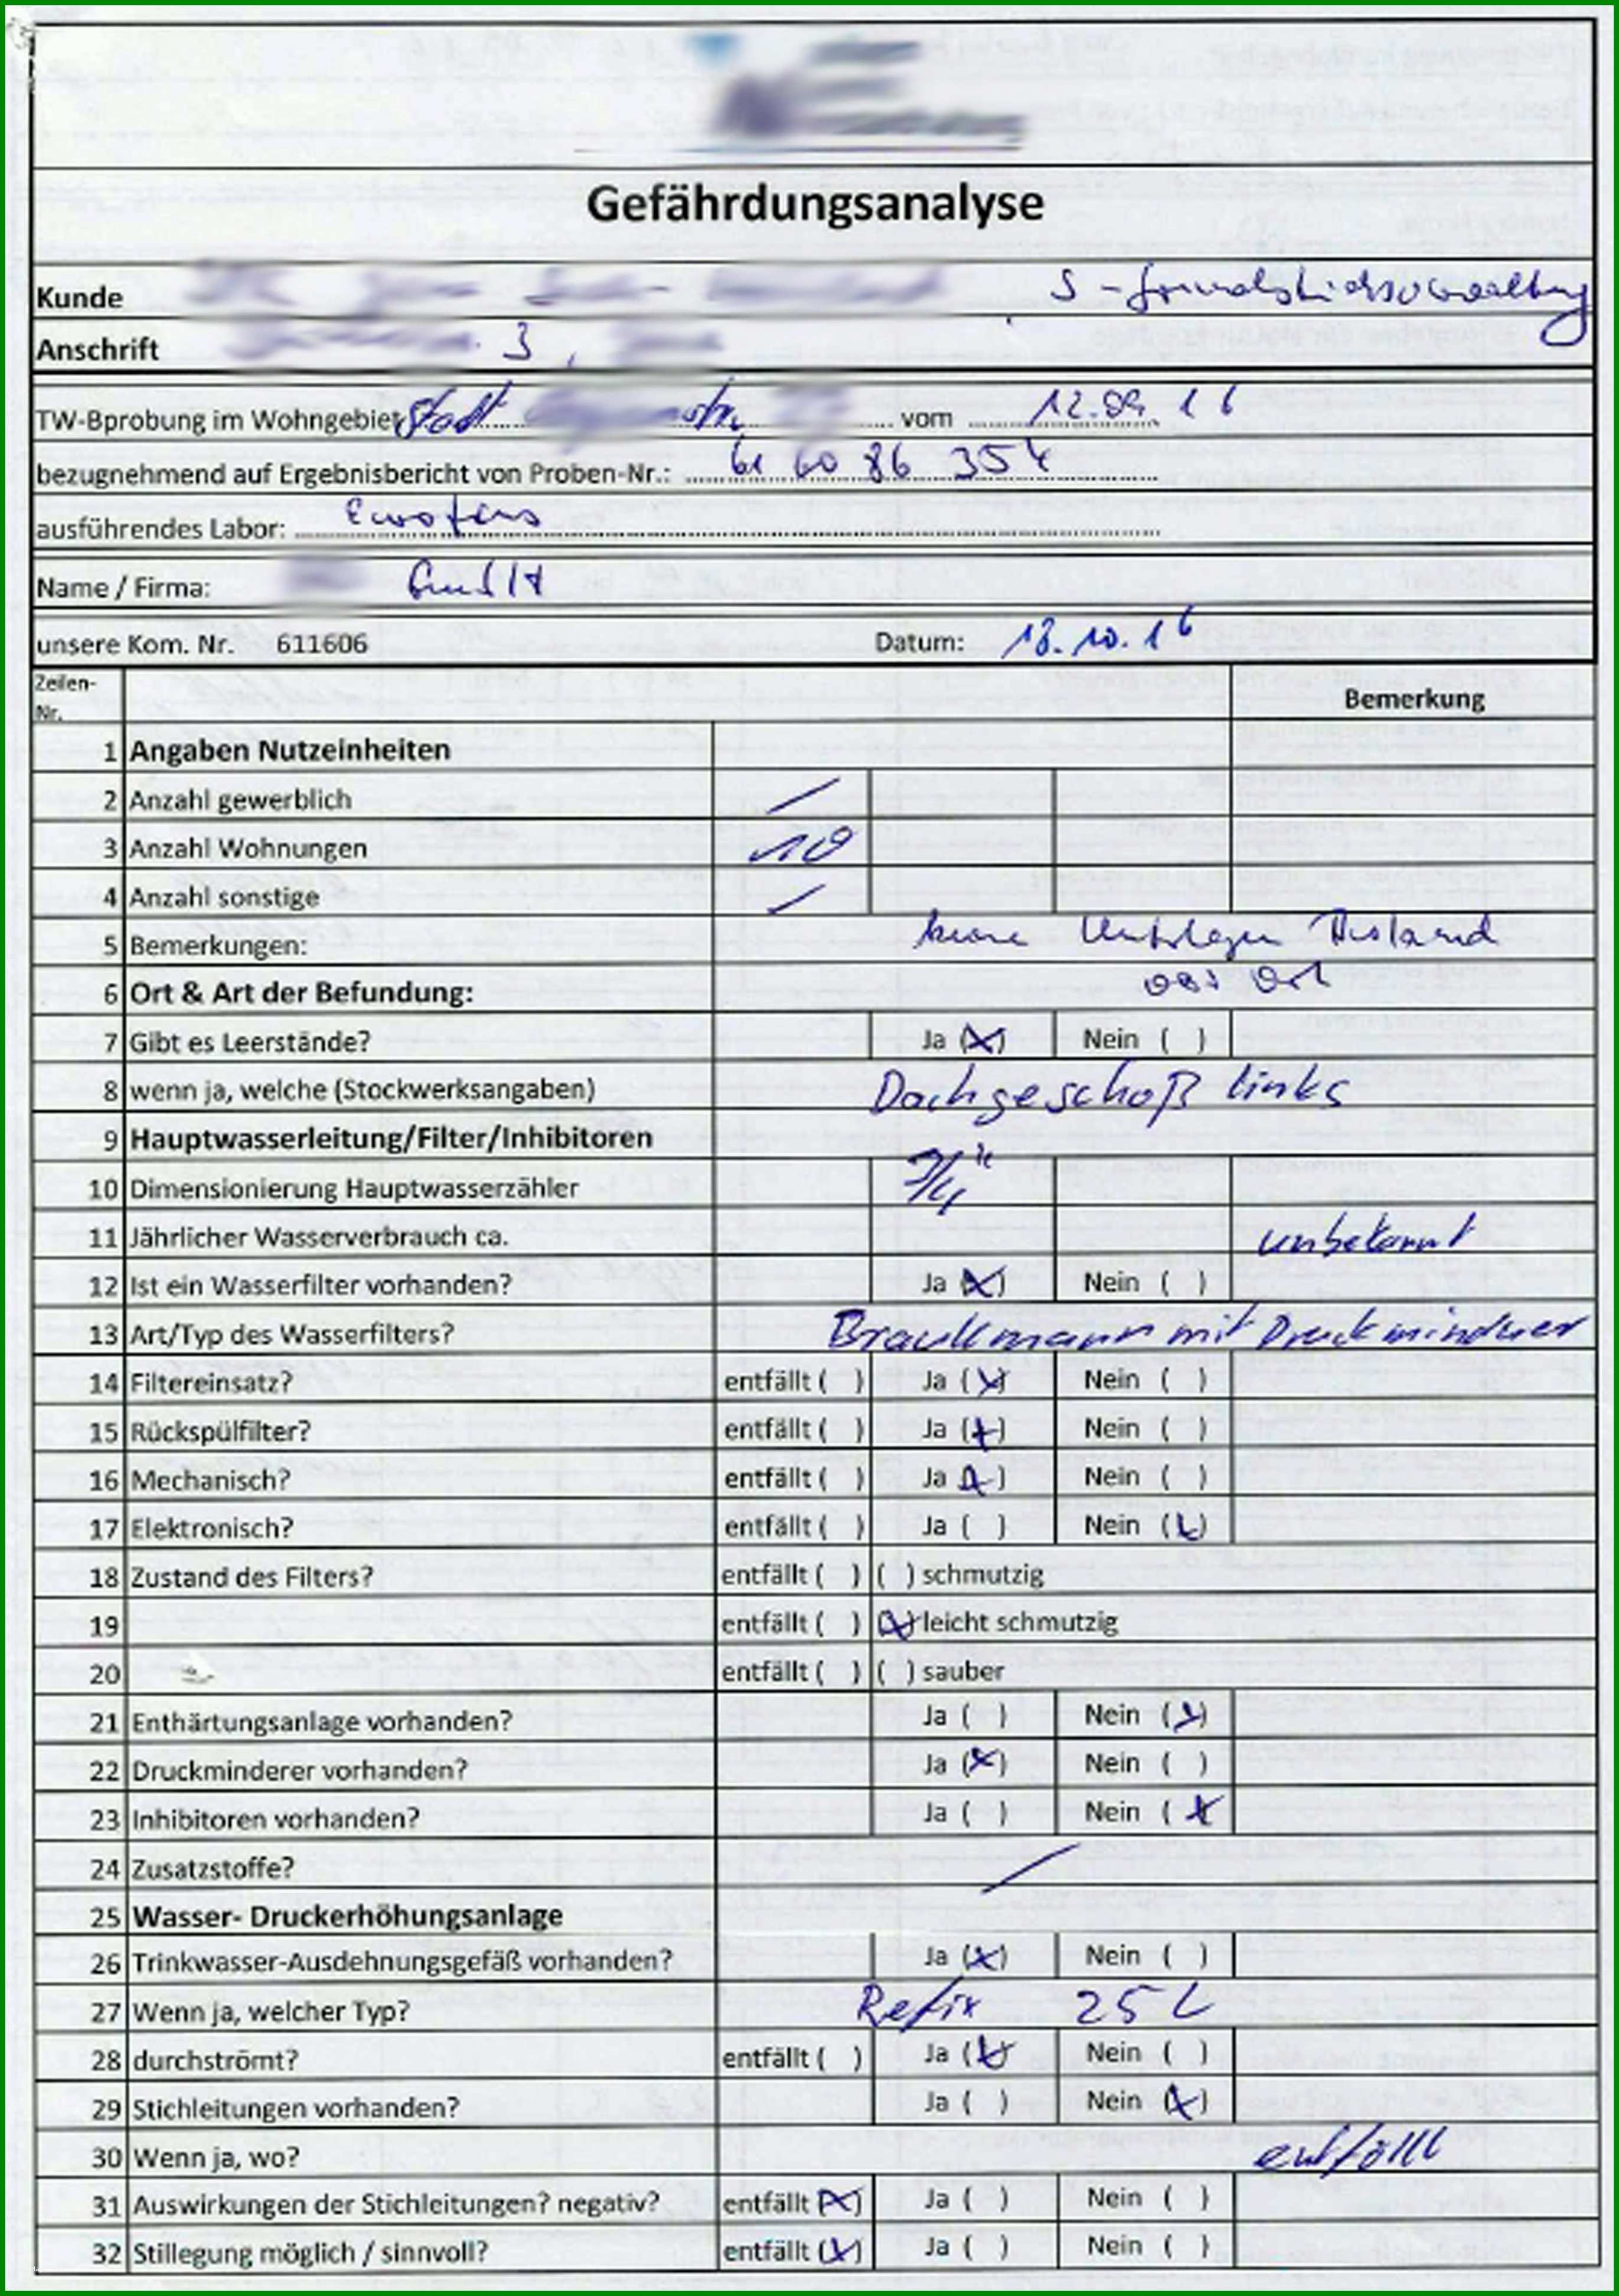 Gefährdungsanalyse
Kunde S-
Anschrift 3,
TW-Bprobung im Wohngebiet Stadt str. vom 12.09.16
bezugnehmend auf Ergebnisbericht von Proben-Nr.: 61 60 86 354
ausführendes Labor: Eurofins
Name / Firma: GmbH
unsere Kom. Nr. 611606 Datum: 18.10.16
Zeilen-
Nr. Bemerkung
1 Angaben Nutzeinheiten
2 Anzahl gewerblich /
3 Anzahl Wohnungen 10
4 Anzahl sonstige /
5 Bemerkungen: keine Unterlagen
6 Ort & Art der Befundung: vor Ort
7 Gibt es Leerstände? Ja (x) Nein ( )
8 wenn ja, welche (Stockwerksangaben) Dachgeschoß links
9 Hauptwasserleitung/Filter/Inhibitoren
10 Dimensionierung Hauptwasserzähler
11 Jährlicher Wasserverbrauch ca. unbekannt
12 Ist ein Wasserfilter vorhanden? Ja (x) Nein ( )
13 Art/Typ des Wasserfilters? Braukmann mit Druckminderer
14 Filtereinsatz? entfällt ( ) Ja (x) Nein ( )
15 Rückspülfilter? entfällt ( ) Ja (x) Nein ( )
16 Mechanisch? entfällt ( ) Ja (x) Nein ( )
17 Elektronisch? entfällt ( ) Ja ( ) Nein (x)
18 Zustand des Filters? entfällt ( ) ( ) schmutzig
19 entfällt ( ) (x) leicht schmutzig
20 entfällt ( ) ( ) sauber
21 Enthärtungsanlage vorhanden? Ja ( ) Nein (x)
22 Druckminderer vorhanden? Ja (x) Nein ( )
23 Inhibitoren vorhanden? Ja ( ) Nein (x)
24 Zusatzstoffe? /
25 Wasser- Druckerhöhungsanlage
26 Trinkwasser-Ausdehnungsgefäß vorhanden? Ja (x) Nein ( )
27 Wenn ja, welcher Typ? Refix 25 L
28 durchströmt? entfällt ( ) Ja (x) Nein ( )
29 Stichleitungen vorhanden? Ja ( ) Nein (x)
30 Wenn ja, wo? entfällt
31 Auswirkungen der Stichleitungen? negativ? entfällt (x) Ja ( ) Nein ( )
32 Stillegung möglich / sinnvoll? entfällt (x) Ja ( ) Nein ( )